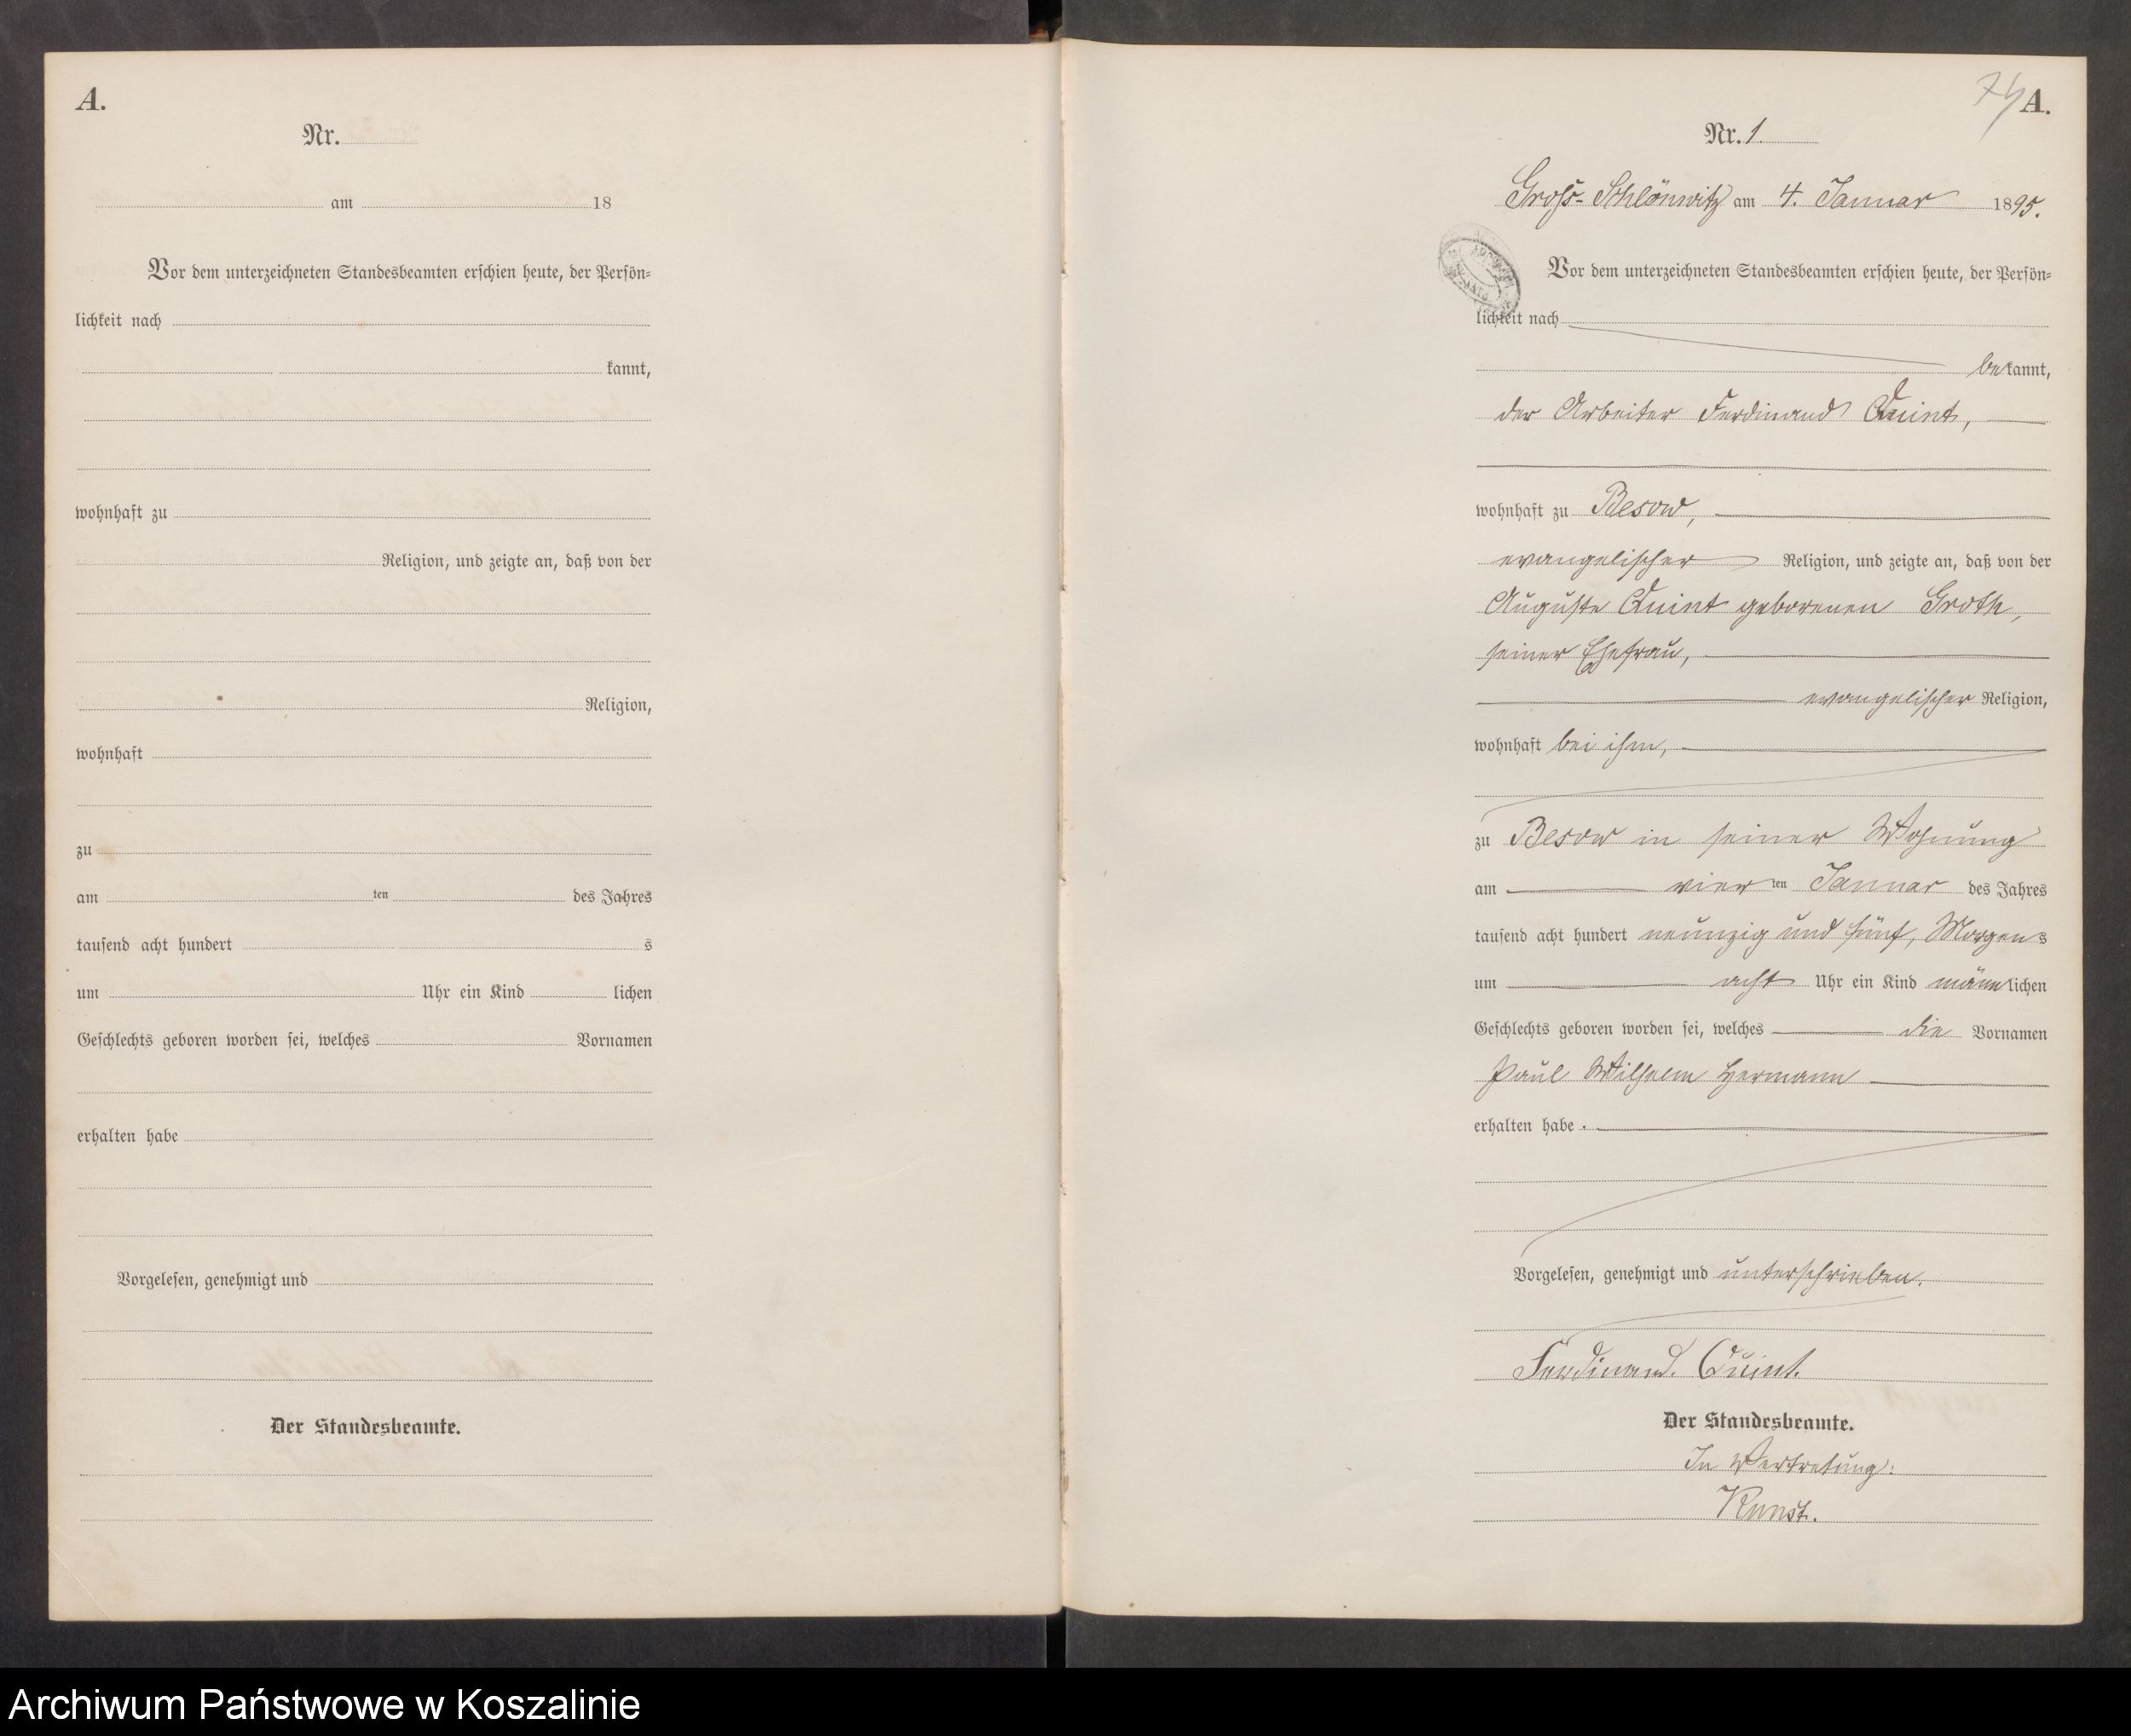 A.
Nr.
am 18
Vor dem unterzeichneten Standesbeamten erschien heute, der Persön-
lichkeit nach
kannt,
wohnhaft zu
Religion, und zeigte an, daß von der
Religion,
wohnhaft
zu
am ten des Jahres
tausend acht hundert s
um Uhr ein Kind lichen
Geschlechts geboren worden sei, welches Vornamen
erhalten habe
Vorgelesen, genehmigt und
Der Standesbeamte.
A.
Nr. 1.
Groß-Schlönwitz am 4. Januar 1895.
Vor dem unterzeichneten Standesbeamten erschien heute, der Persön-
lichkeit nach
bekannt,
der Arbeiter Ferdinand Quint,
wohnhaft zu Besow,
evangelischer Religion, und zeigte an, daß von der
Auguste Quint geborenen Groth,
seiner Ehefrau,
evangelischer Religion,
wohnhaft bei ihm,
zu Besow in seiner Wohnung
am vierten Januar des Jahres
tausend acht hundert neunzig und fünf, Morgens
um acht Uhr ein Kind männlichen
Geschlechts geboren worden sei, welches die Vornamen
Paul Wilhelm Hermann
erhalten habe.
Vorgelesen, genehmigt und unterschrieben.
Ferdinand. Quint.
Der Standesbeamte.
In Vertretung:
Kunst.
Archiwum Państwowe w Koszalinie